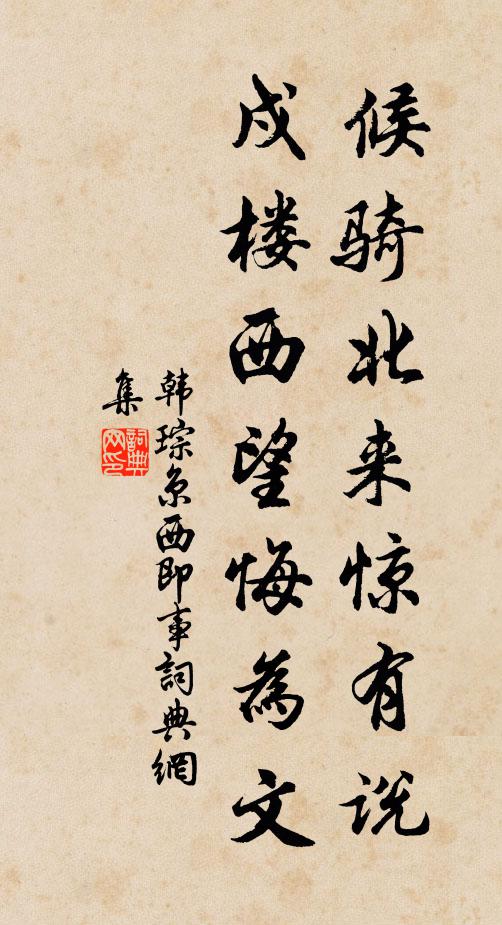 候骑北来惊有说
戍楼西望悔为文
韩琮京西即事词典網
集
詞典
网印